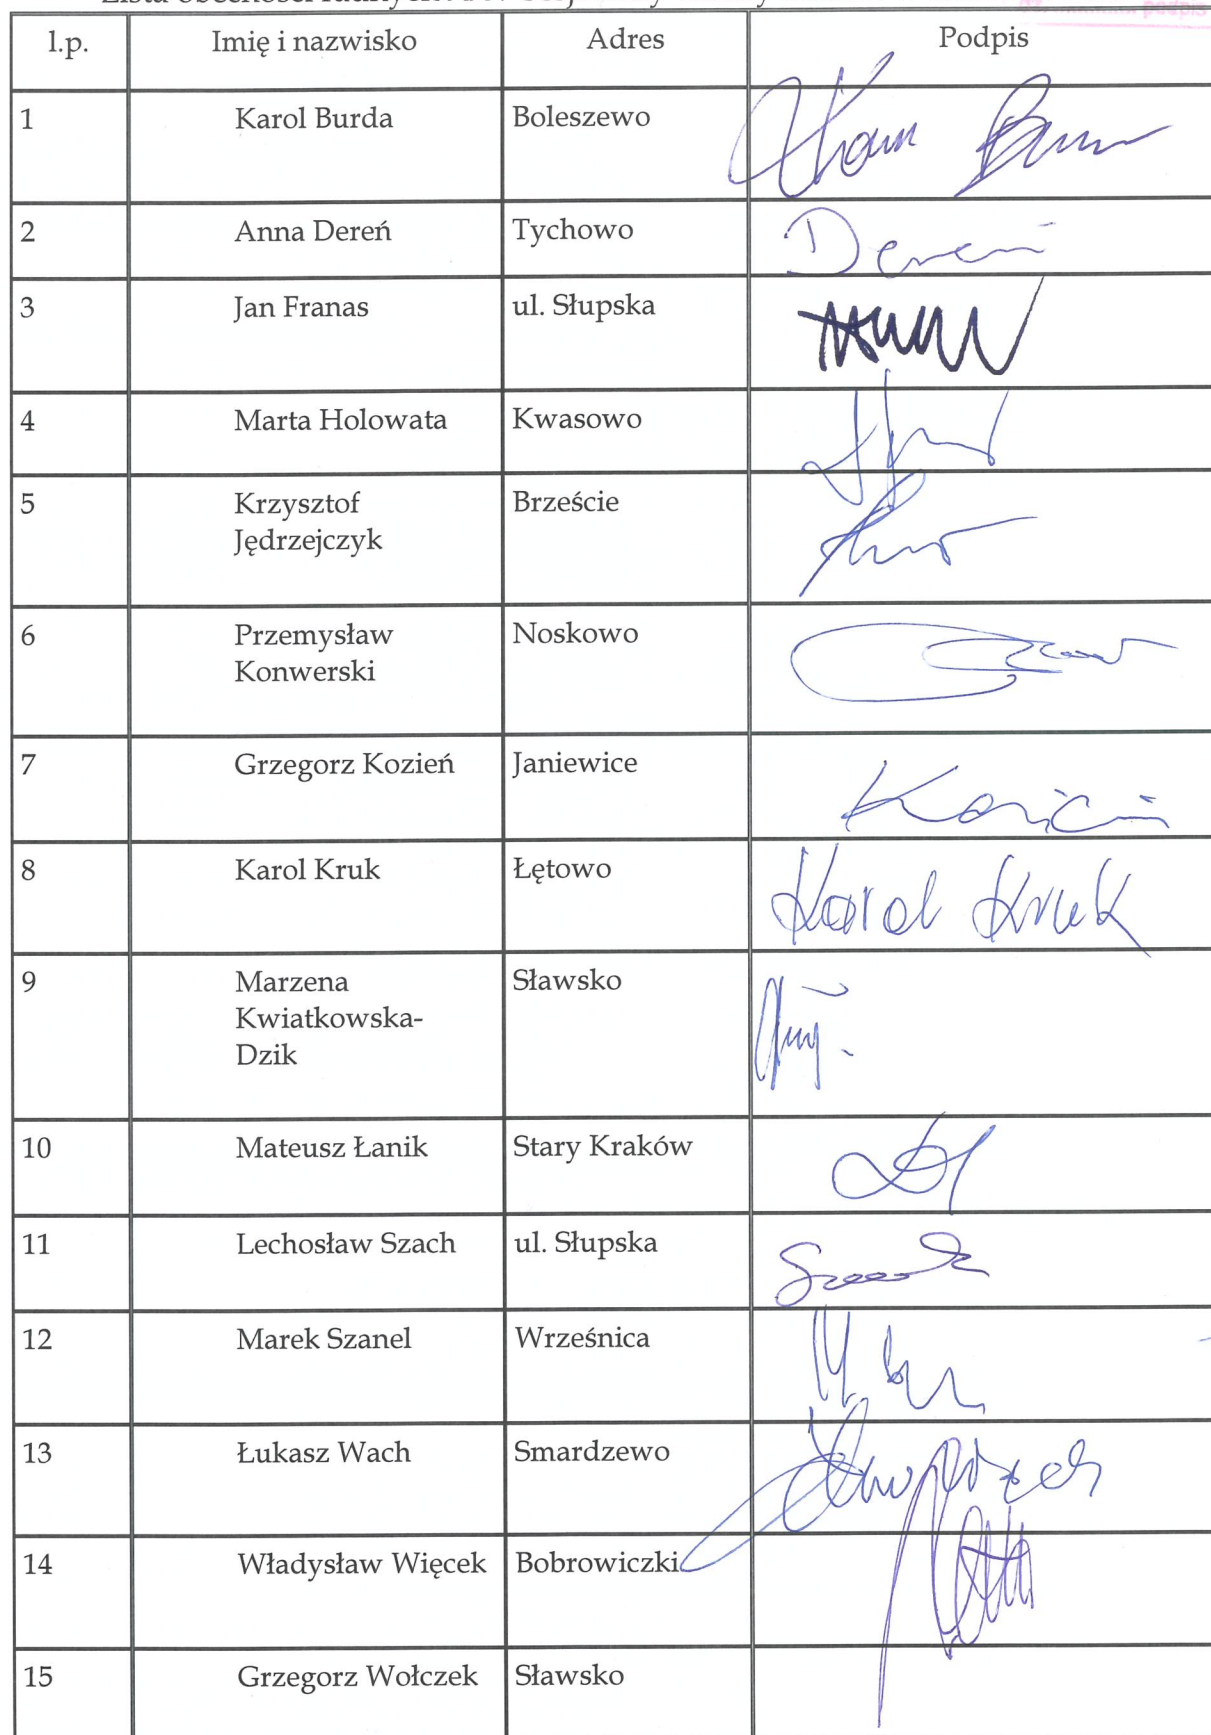 l.p. Imię i nazwisko Adres Podpis
1 Karol Burda Boleszewo
2 Anna Dereń Tychowo Dereń
3 Jan Franas ul. Słupska
4 Marta Holowata Kwasowo
5 Krzysztof Brzeście
Jędrzejczyk
6 Przemysław Noskowo
Konwerski
7 Grzegorz Kozień Janiewice Kozień
8 Karol Kruk Łętowo Karol Kruk
9 Marzena Sławsko
Kwiatkowska-
Dzik
10 Mateusz Łanik Stary Kraków
11 Lechosław Szach ul. Słupska
12 Marek Szanel Wrześnica
13 Łukasz Wach Smardzewo
14 Władysław Więcek Bobrowiczki
15 Grzegorz Wołczek Sławsko